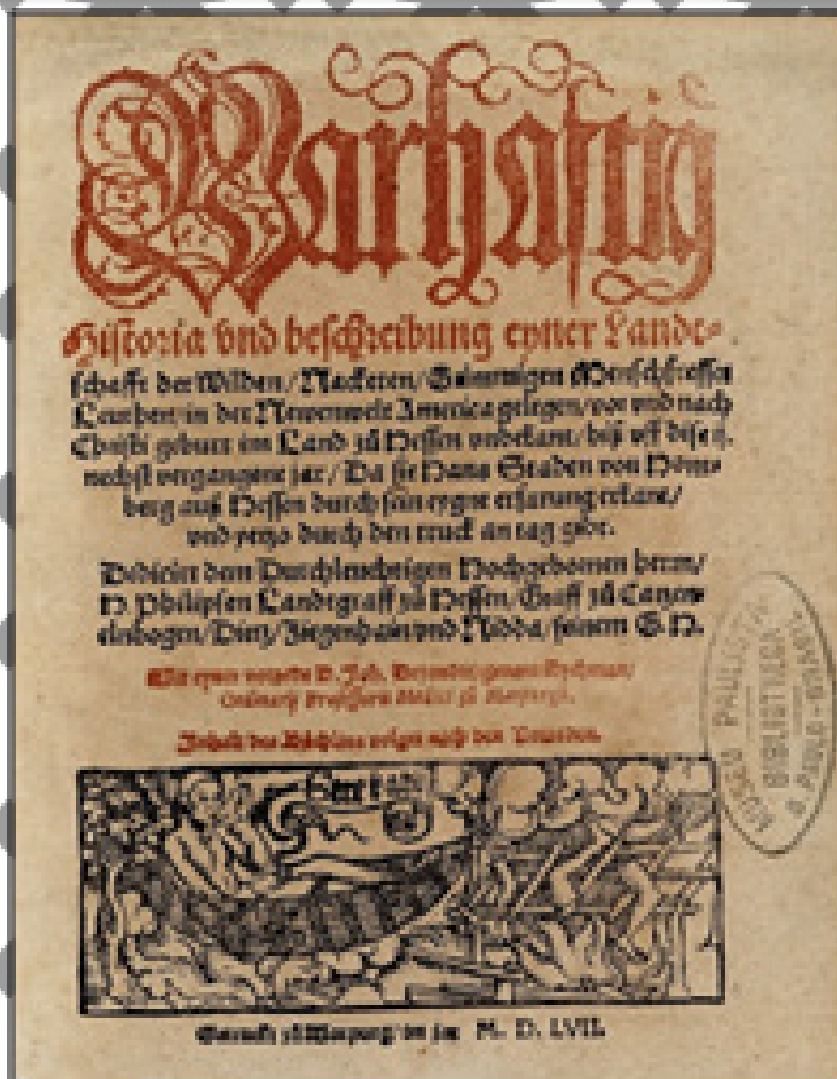 Warhaftig
Historia vnd beschreibung eyner Landt-
schafft der Wilden/Nacketen/Grimmigen Menschfresser
Leuthen/in der Newenwelt America gelegen/vor vnd nach
Christi geburt im Land zů Hessen vnbekant/biß vff dise ij.
nechst vergangene jar/Da sie Hans Staden von Hom-
berg auß Hessen durch sein eygne erfarung erkant/
vnd yetzo durch den truck an tag gibt.
Dedicirt dem Durchleuchtigen Hochgebornen herrn/
H. Philipsen Landtgraff zů Hessen/Graff zů Catzen-
elnbogen/Dietz/Ziegenhain vnd Nidda/seinem G. H.
Mit eyner vorrede D. Joh. Dryandri/genant Eychman/
Ordinarij Professoris Medici zů Marpurgk.
Inhalt des Bůchlins volget nach den Vorreden.
Getruckt zů Marpurg/im jar M. D. LVII.
MUSEU PAULISTA
BIBLIOTHECA
S. PAULO - BRASIL